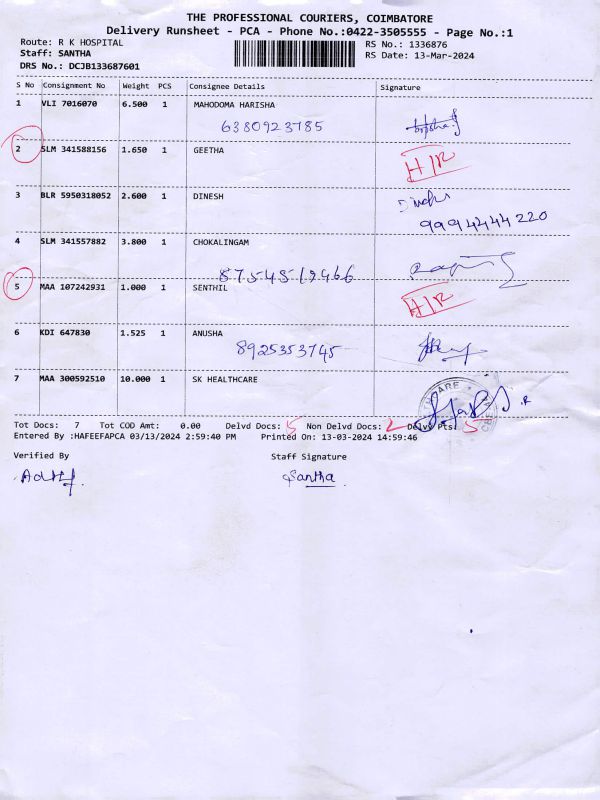 THE PROFESSIONAL COURIERS, COIMBATORE
Delivery Runsheet - PCA - Phone No.:0422-3505555 - Page No.:1
Route: R K HOSPITAL RS No.: 1336876
Staff: SANTHA RS Date: 13-Mar-2024
DRS No.: DCJB133687601
S No Consignment No Weight PCS Consignee Details Signature
1 VLI 7016070 6.500 1 MAHODOMA HARISHA
6380923785
2 SLM 341588156 1.650 1 GEETHA H/R
3 BLR 5950318052 2.600 1 DINESH
9994444220
4 SLM 341557882 3.800 1 CHOKALINGAM
8754519466
5 MAA 107242931 1.000 1 SENTHIL H/R
6 KDI 647830 1.525 1 ANUSHA
8925353745
7 MAA 300592510 10.000 1 SK HEALTHCARE
Tot Docs: 7 Tot COD Amt: 0.00 Delvd Docs: 5 Non Delvd Docs: 2 Delvd Pts: 5
Entered By :HAFEEFAPCA 03/13/2024 2:59:40 PM Printed On: 13-03-2024 14:59:46
Verified By Staff Signature
Santha